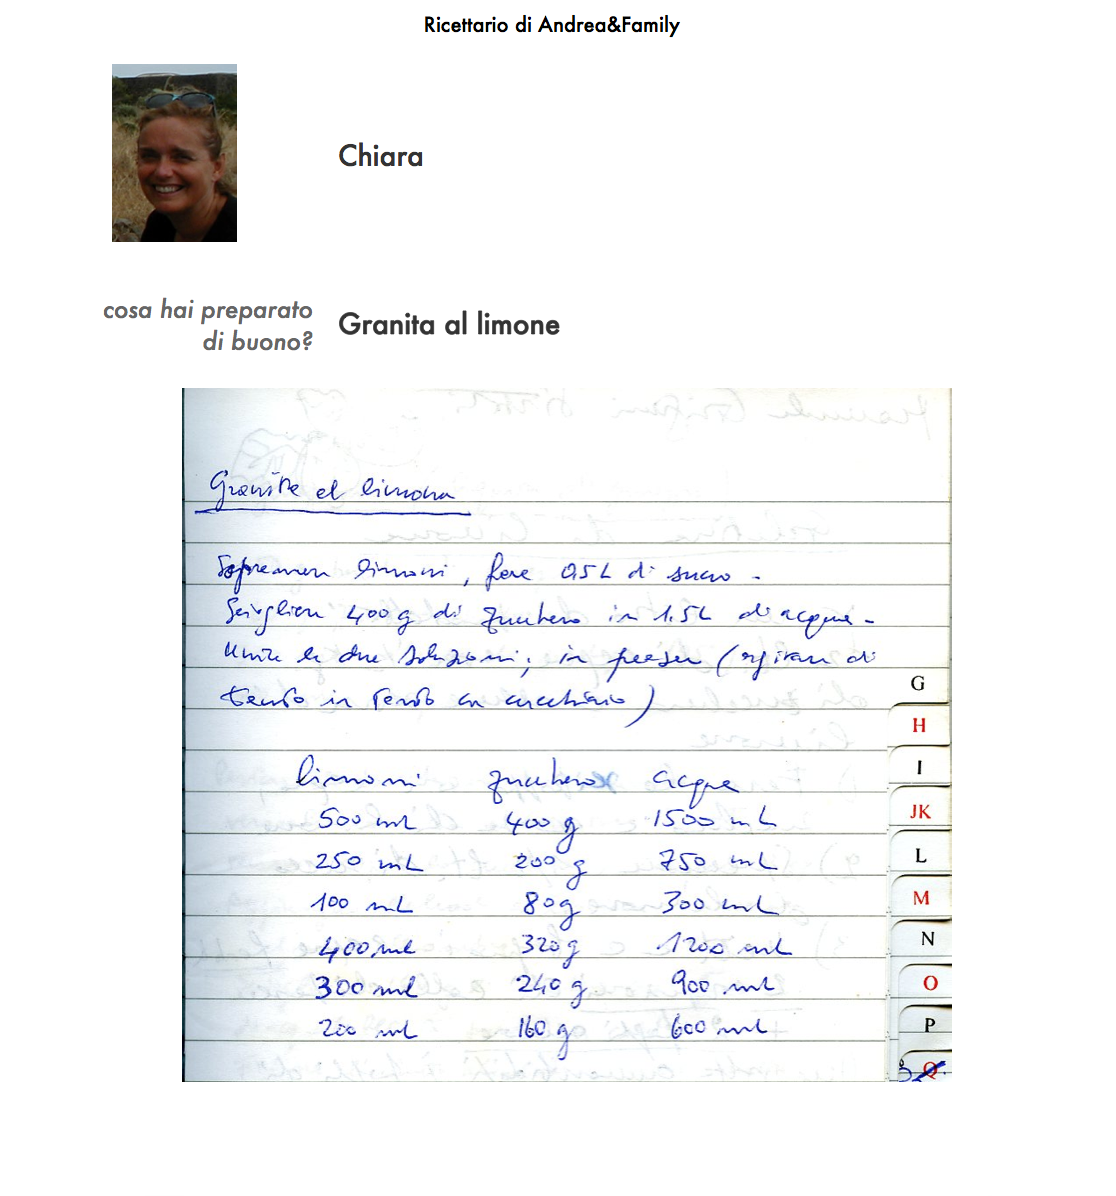 Ricettario di Andrea&Family
Chiara
cosa hai preparato
di buono?
Granita al limone
Granita al limone
Spremere limoni, fare 0,5 L di succo -
Sciogliere 400 g di zucchero in 1.5 L di acqua -
Unire le due soluzioni; in freezer (rigirare di
tanto in tanto con cucchiaio)
limoni zucchero acqua
500 mL 400 g 1500 mL
250 mL 200 g 750 mL
100 mL 80 g 300 mL
400 mL 320 g 1200 mL
300 mL 240 g 900 mL
200 mL 160 g 600 mL
G
H
I
JK
L
M
N
O
P
Q